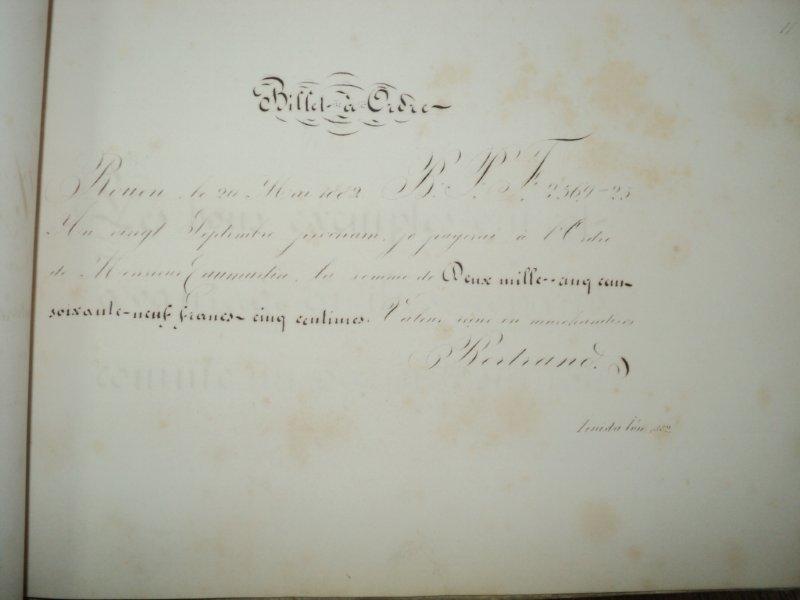 Billet à Ordre
Rouen, le 20 Mai 1882. B. P. F. 2569-25
Au vingt Septembre prochain, je payerai à l'Ordre
de Monsieur la somme de Deux mille-cinq cen-
soixante-neuf francs-cinq centimes. Valeur reçue en marchandises
Bertrand.
1882